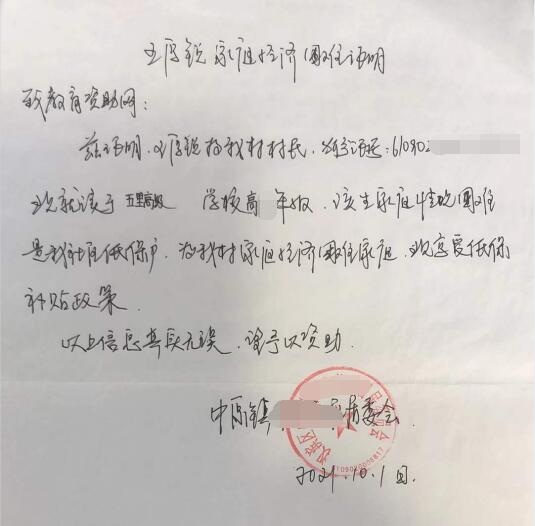 王厚锐家庭经济困难证明
致教育资助网：
兹证明，王厚锐为我村村民，身份证号：61090
现就读于五里高级 学校高 年级，该生家庭情况困难
是我社区低保户，为我村家庭经济困难家庭，现享受低保
补贴政策。
以上信息真实无误，请予以资助。
中原镇 居委会
汉滨区
2021.10.1日.